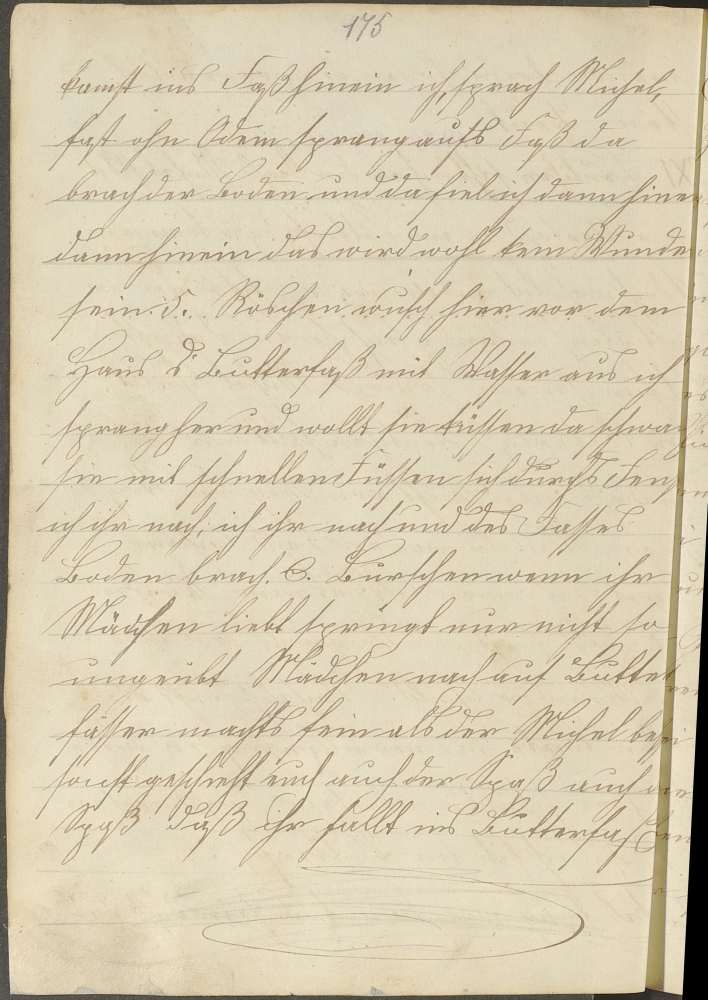 175
kamst ins Faß hinein ich, sprach Michel,
fast ohn Odem sprang aufs Faß da
brach der Boden und da fiel ich dann hinein
dann hinein das wird wohl kein Wunder
sein. 5. Röschen wusch hier vor dem
Haus d. Butterfaß mit Wasser aus ich
sprang her und wollt sie küssen da schwang
sie mit schnellen Füssen sich durchs
ich ihr nach, ich ihr nach und des Fasses
Boden brach. 6. Burschen wenn ihr
Mädchen liebt springt nur nicht so
ungeübt Mädchen nach auf Butter
fässer machts fein als der Michel
sonst geschieht euch auch der Spaß auch
Spaß daß ihr fallt ins Butterfaß